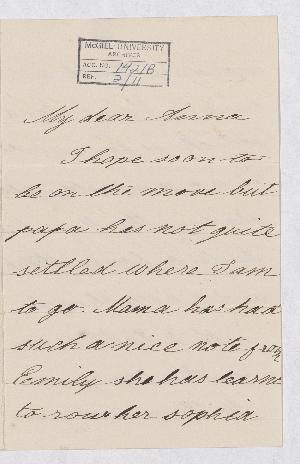 McGILL UNIVERSITY
ARCHIVES
ACC. NO.
REF. 2/11
My dear Anna
I hope soon to
be on the move but
papa has not quite
settled where I am
to go. Mama has had
such a nice note from
Emily she has learnt
to row her sophia